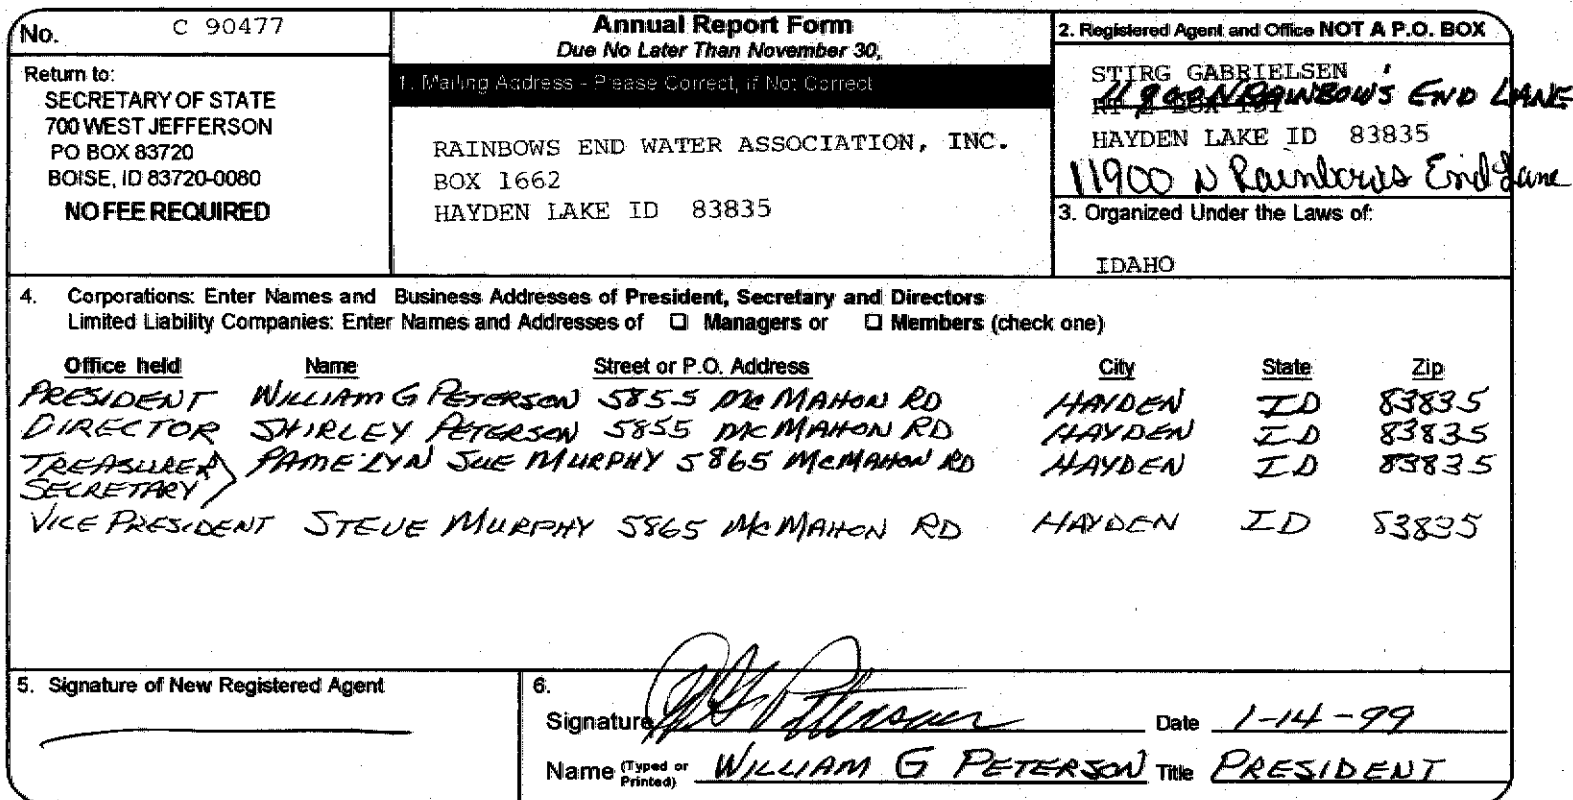 No. C 90477
Return to:
SECRETARY OF STATE
700 WEST JEFFERSON
PO BOX 83720
BOISE, ID 83720-0080
NO FEE REQUIRED
Annual Report Form
Due No Later Than November 30,
1. Mailing Address - Please Correct, if Not Correct
RAINBOWS END WATER ASSOCIATION, INC.
BOX 1662
HAYDEN LAKE ID 83835
2. Registered Agent and Office NOT A P.O. BOX
STIRG GABRIELSEN
N RAINBOW'S END LANE
HAYDEN LAKE ID 83835
11900 N Rainbows End Lane
3. Organized Under the Laws of:
IDAHO
4. Corporations: Enter Names and Business Addresses of President, Secretary and Directors
Limited Liability Companies: Enter Names and Addresses of ☐ Managers or ☐ Members (check one)
Office held Name Street or P.O. Address City State Zip
PRESIDENT WILLIAM G PETERSON 5855 McMAHON RD HAYDEN ID 83835
DIRECTOR SHIRLEY PETERSON 5855 McMAHON RD HAYDEN ID 83835
TREASURER PAME'LYN SUE MURPHY 5865 McMAHON RD HAYDEN ID 83835
SECRETARY
VICE PRESIDENT STEVE MURPHY 5865 McMAHON RD HAYDEN ID 83835
5. Signature of New Registered Agent
6.
Signature W G Peterson Date 1-14-99
Name (Typed or Printed) WILLIAM G PETERSON Title PRESIDENT